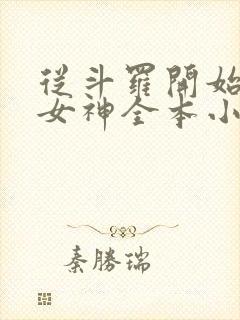 從斗羅開始
女神全本小
秦勝瑞